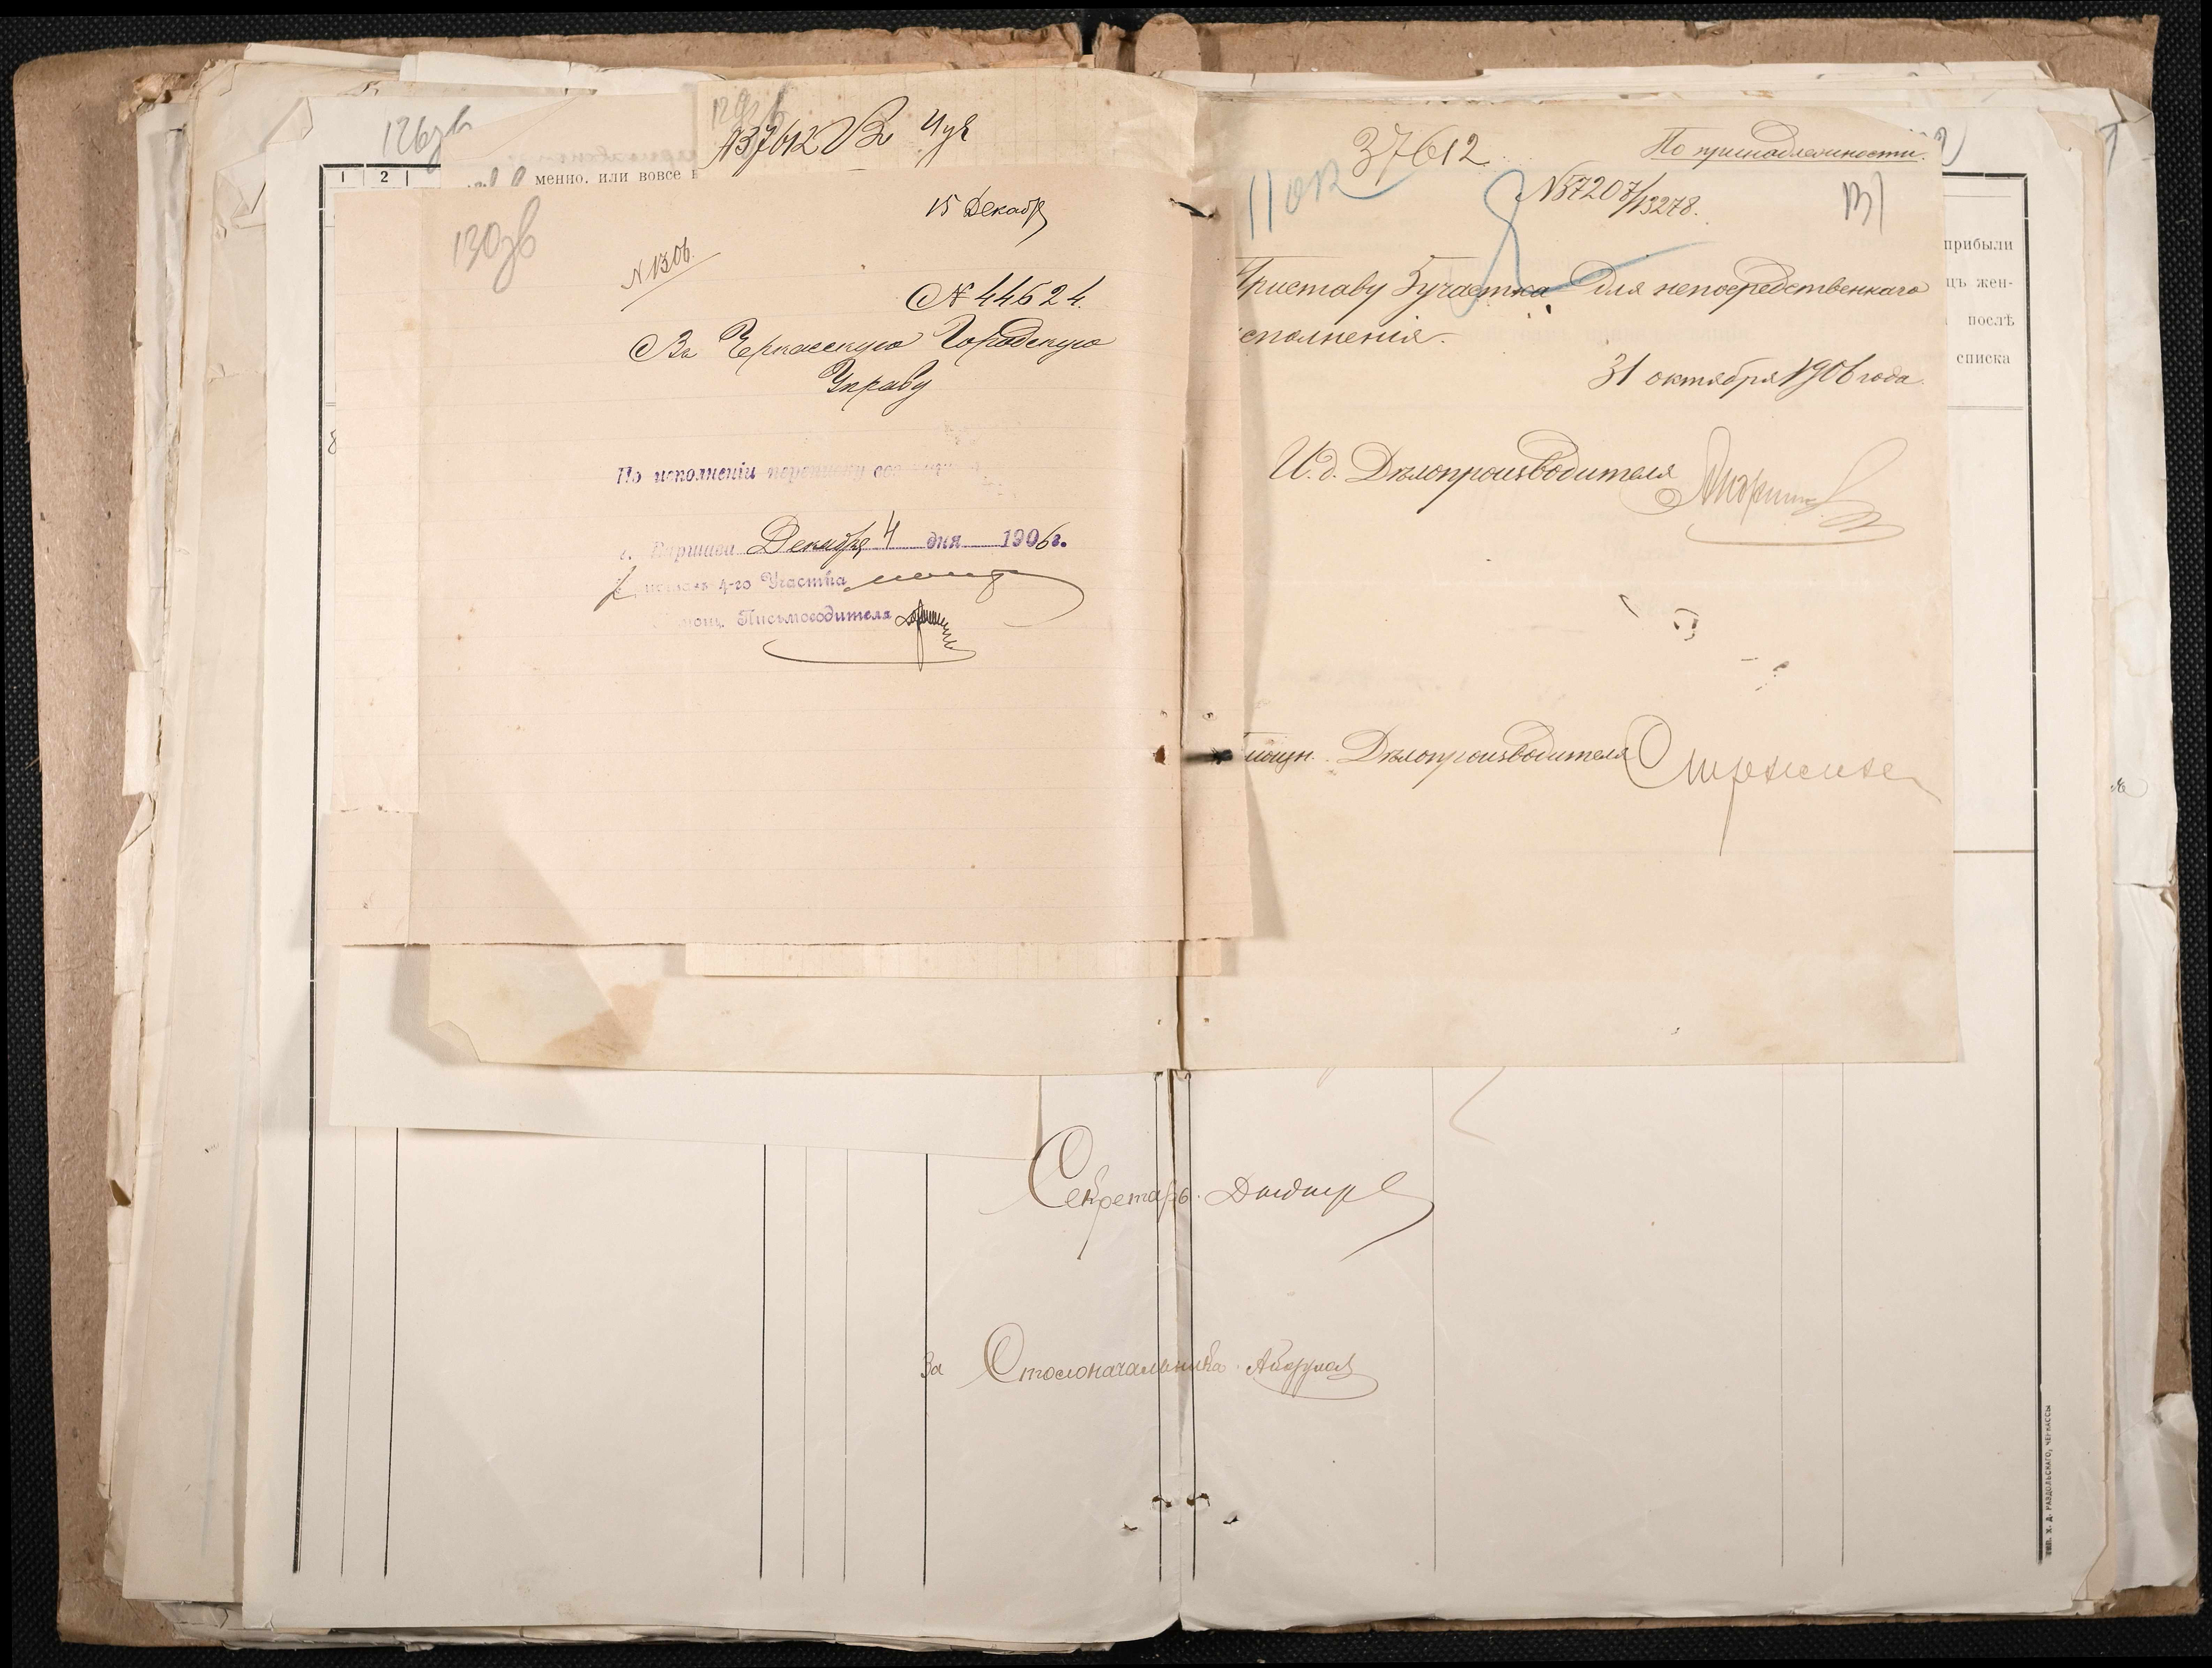 126зв
№37612 Въ
1 2
менно. или вовсе
130зв
15 Декабр
N 1306.
№ 44624.
Въ Черкасскую Городскую
Управу
По исполненіи переписку
г. Варшава Декабря 4 дня 1906 г.
4-го Участка
Письмоводителя
37612
По принадлежности.
N37207/13278.
131
Приставу 5 участка для непосредственнаго
сполненія.
31 октября 1906 года.
И.д. Дѣлопроизводителя
мощн. Дѣлопроизводителя
прибыли
цъ жен-
послѣ
списка
Секретарь.
За Столоначальника
ТИП. Х. Д. РАЗДОЛЬСКАГО, ЧЕРКАССЫ